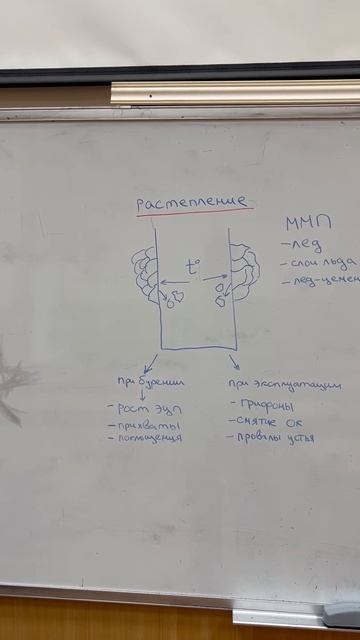 растепление
ММП
-лед
-слои льда
-лед-цемен
t°
при бурении
-рост ЭЦП
-прихваты
-поглощения
при эксплуатации
-грифоны
-смятие ОК
-провалы устья